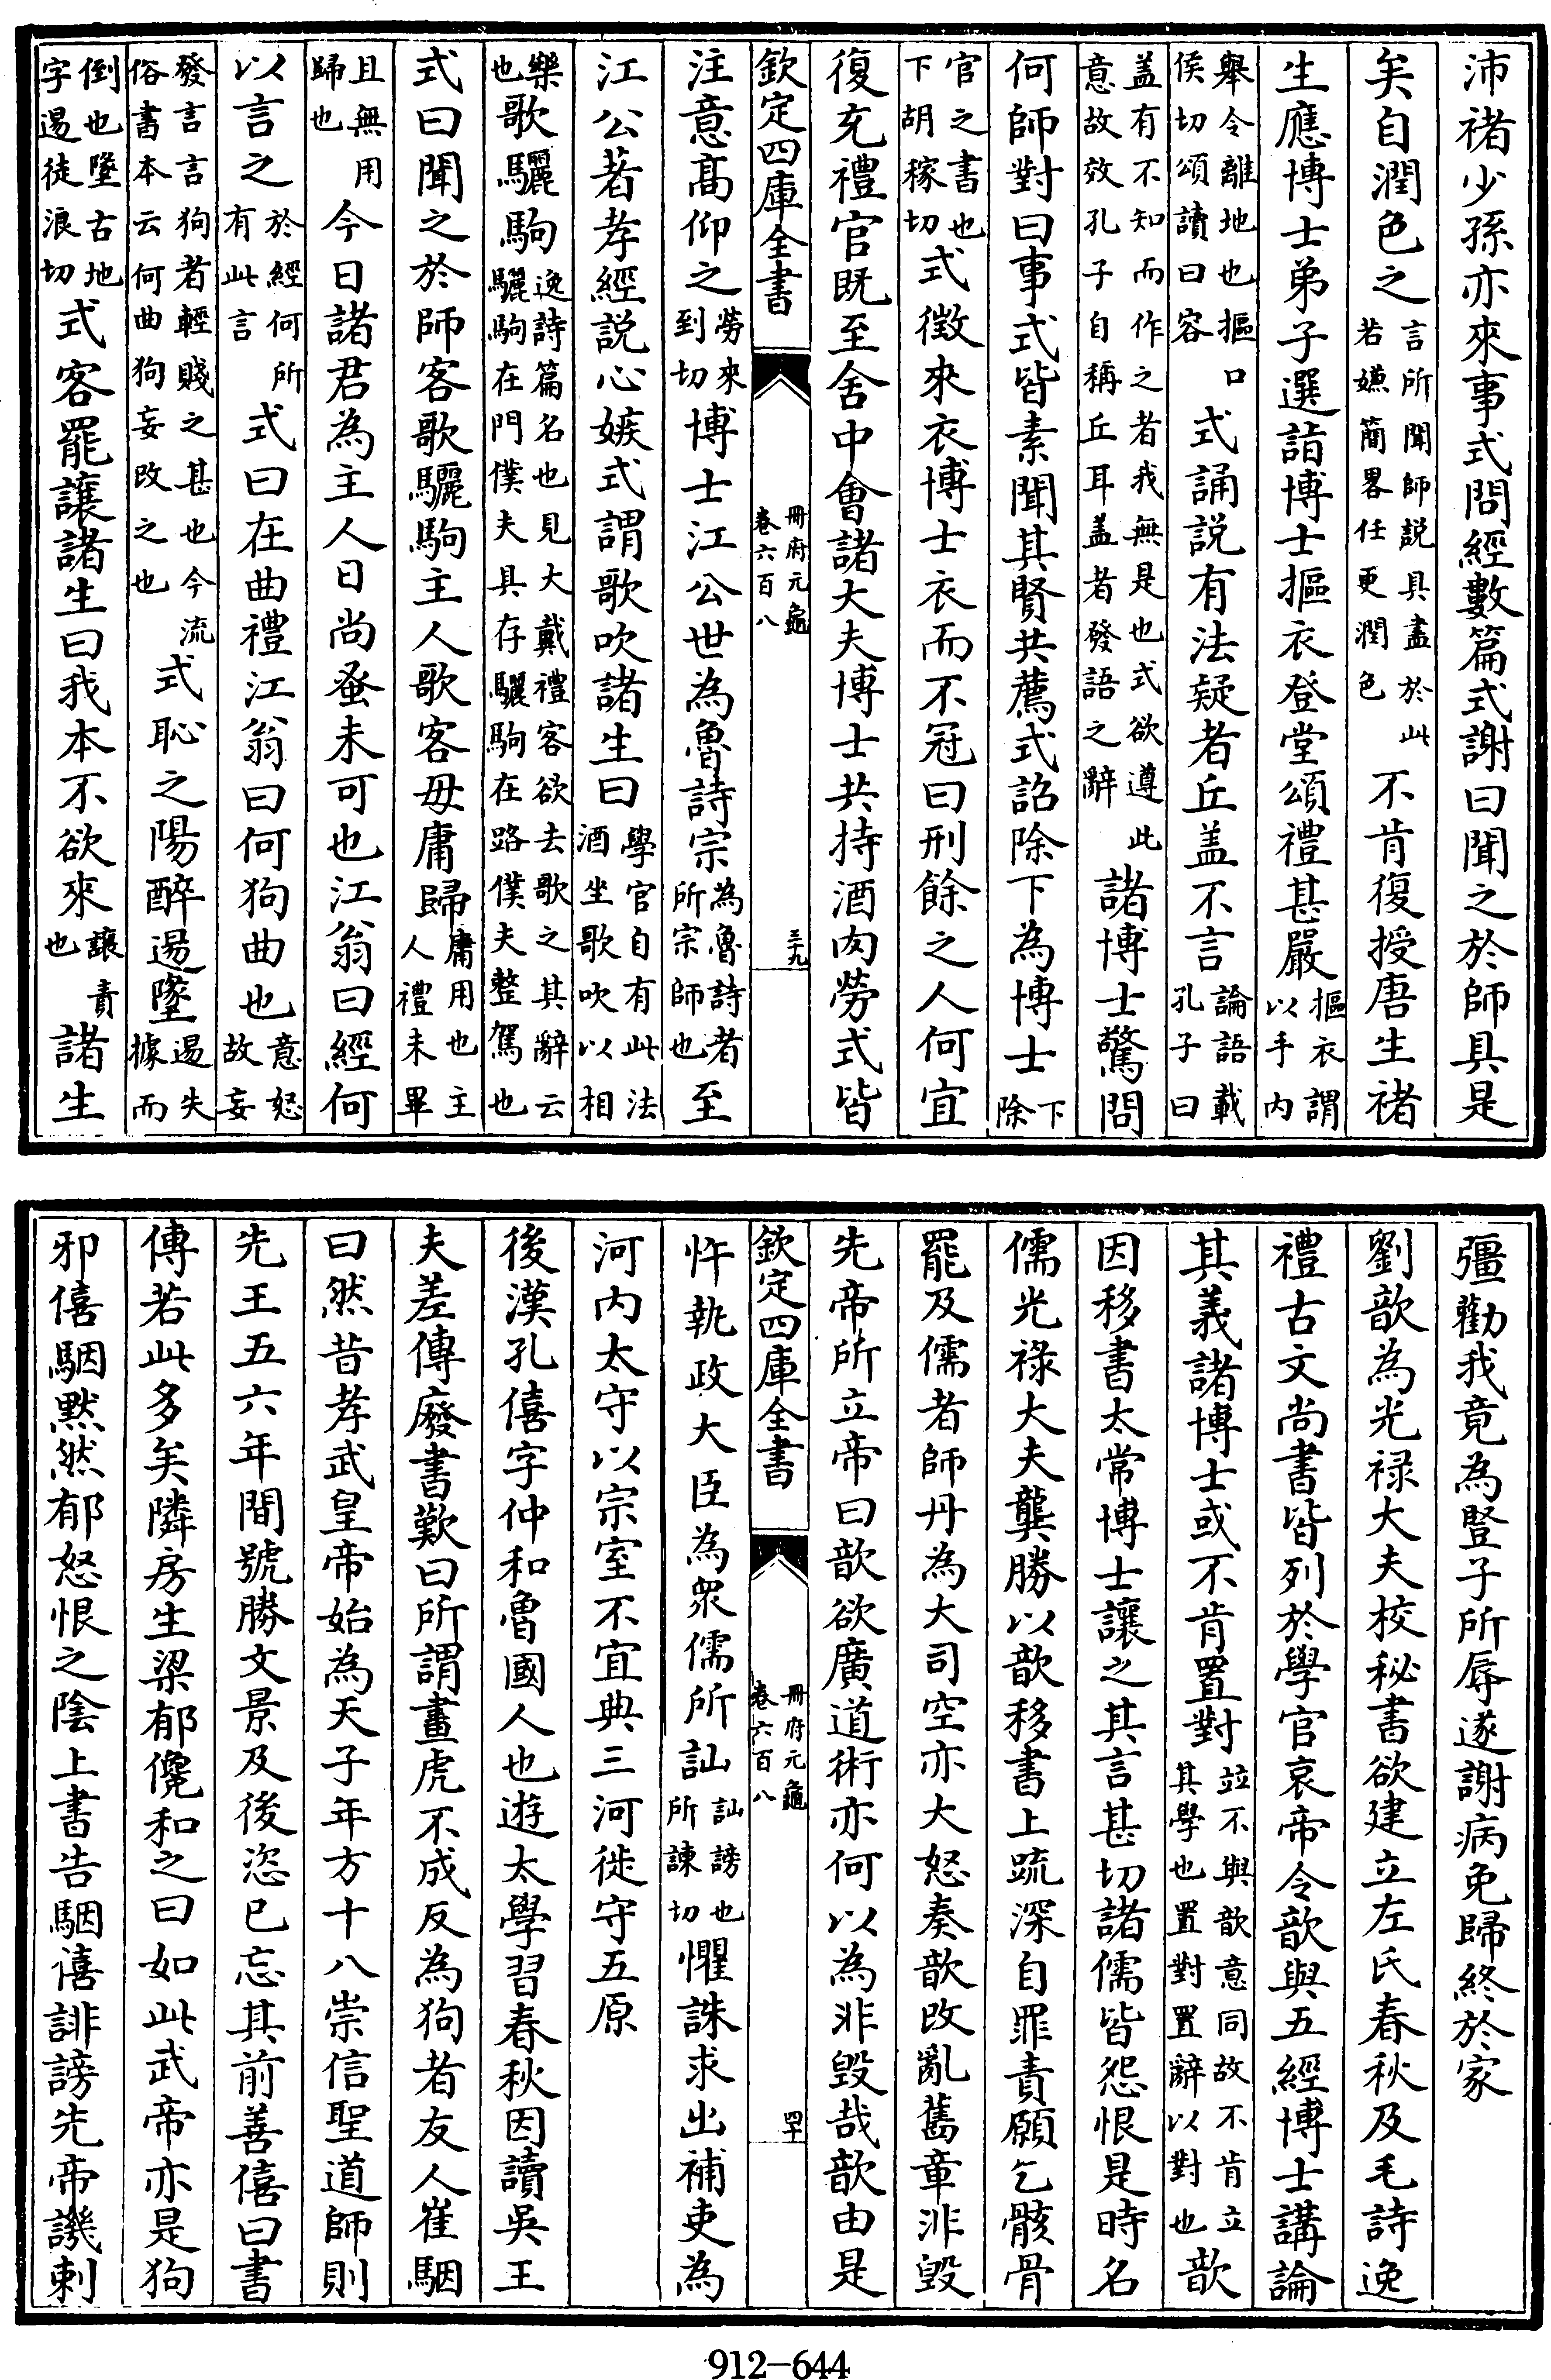 沛褚少孫亦來事式問經數篇式謝曰聞之於師具是
矣自潤色之言所聞師説具盡於此若嫌簡畧任更潤色不肯復授唐生褚
生應博士弟子選詣博士摳衣登堂頌禮甚嚴摳衣謂以手内
舉令離地也摳口侯切頌讀曰容式誦説有法疑者丘盖不言論語載孔子曰
盖有不知而作之者我無是也式欲遵此意故效孔子自稱丘耳盖者發語之辭諸博士驚問
何師對曰事式皆素聞其賢共薦式詔除下為博士下除
官之書也下胡稼切式徵來衣博士衣而不冠曰刑餘之人何宜
復充禮官既至舍中會諸大夫博士共持酒肉勞式皆
欽定四庫全書 冊府元龜 卷六百八 三十九
注意髙仰之勞來到切博士江公世為魯詩宗為魯詩者所宗師也至
江公著孝經説心嫉式謂歌吹諸生曰學官自有此法酒坐歌吹以相
樂也歌驪駒逸詩篇名也見大戴禮客欲去歌之其辭云驪駒在門僕夫具存驪駒在路僕夫整駕也
式曰聞之於師客歌驪駒主人歌客毋庸歸庸用也主人禮未畢
且無用歸也今日諸君為主人日尚蚤未可也江翁曰經何
以言之於經何所有此言式曰在曲禮江翁曰何狗曲也意怒故妄
發言言狗者輕賤之甚也今流俗書本云何曲狗妄改之也式恥之陽醉逿墜逿失據而
倒也墜古地字逿徒浪切式客罷讓諸生曰我本不欲來讓責也諸生
彊勸我竟為豎子所辱遂謝病免歸終於家
劉歆為光禄大夫校秘書欲建立左氏春秋及毛詩逸
禮古文尚書皆列於學官哀帝令歆與五經博士講論
其義諸博士或不肯置對竝不與歆意同故不肯立其學也置對置辭以對也歆
因移書太常博士讓之其言甚切諸儒皆怨恨是時名
儒光祿大夫龔勝以歆移書上疏深自罪責願乞骸骨
罷及儒者師丹為大司空亦大怒奏歆改亂舊章非毀
先帝所立帝曰歆欲廣道術亦何以為非毀哉歆由是
欽定四庫全書 冊府元龜 卷六百八 四十
忤執政大臣為衆儒所訕訕謗也所諫切懼誅求出補吏為
河内太守以宗室不宜典三河徙守五原
後漢孔僖字仲和魯國人也遊太學習春秋因讀吳王
夫差傳廢書歎曰所謂畫虎不成反為狗者友人崔駰
曰然昔孝武皇帝始為天子年方十八崇信聖道師則
先王五六年間號勝文景及後恣已忘其前善僖曰書
傳若此多矣隣房生梁郁儳和之曰如此武帝亦是狗
邪僖駰黙然郁怒恨之陰上書告駰僖誹謗先帝譏刺
912-644